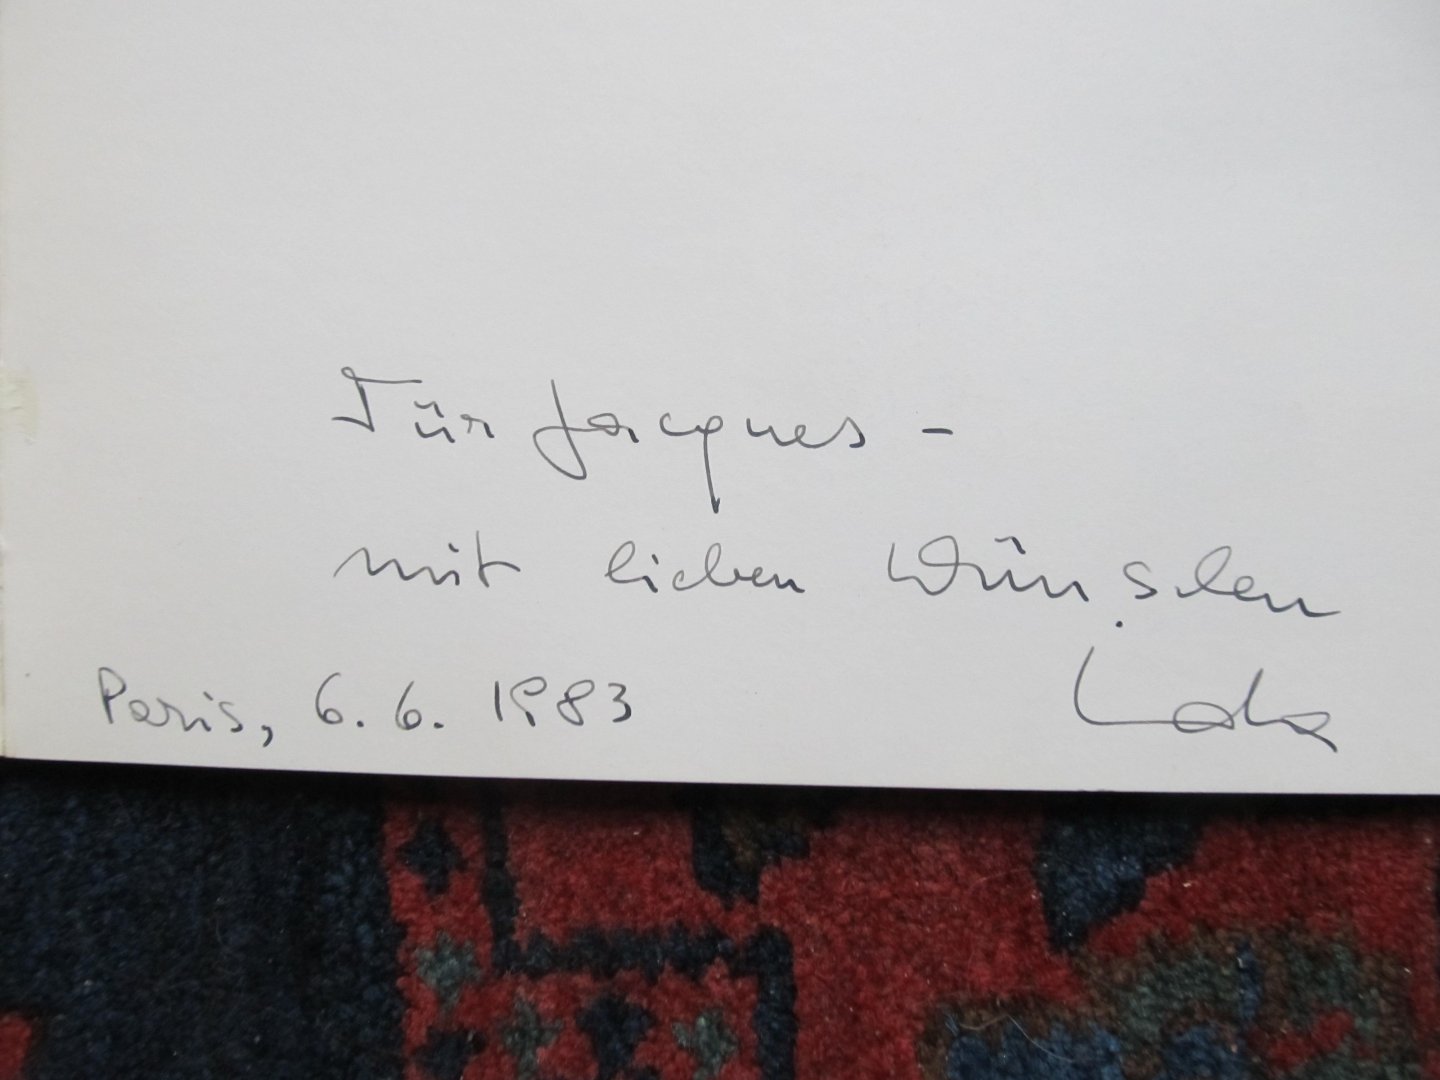 Für Jacques -
mit lieben Wünschen
Paris, 6. 6. 1983